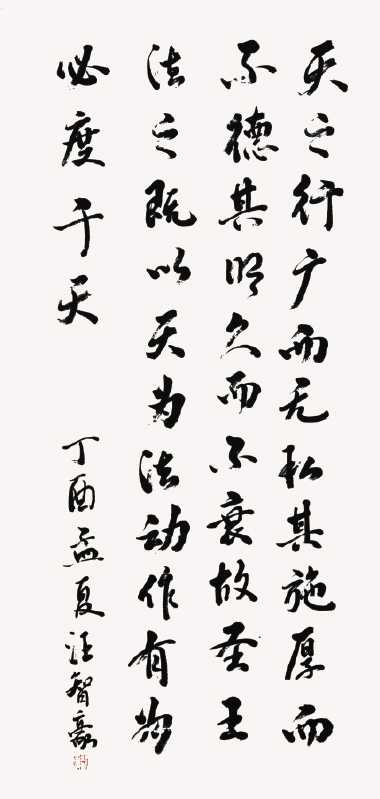 天之行广而无私其施厚而
不德其明久而不衰故圣王
法之既以天为法动作有为
必度于天
丁酉孟夏汪智豪